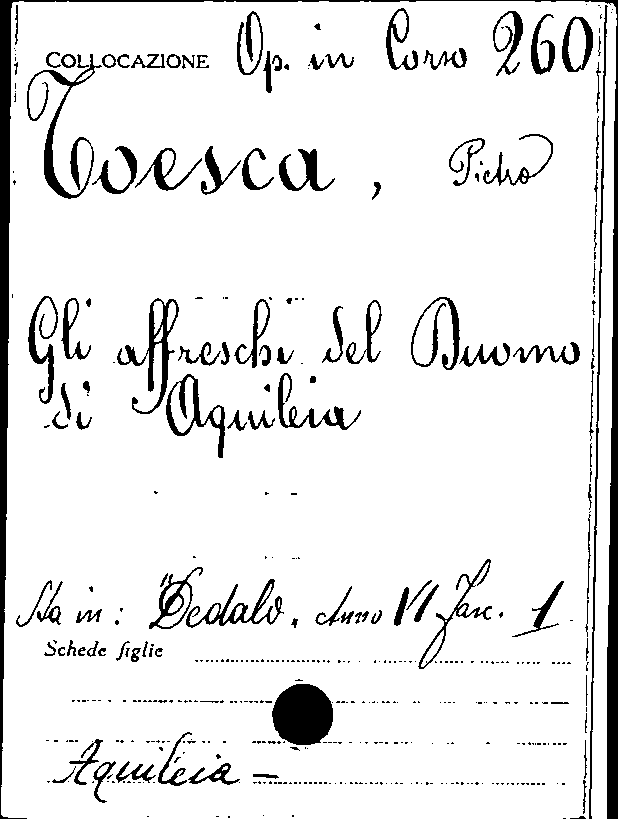 COLLOCAZIONE Op. in Corso 260
Toesca, Pietro
Gli affreschi del Duomo
di Aquileia
Sta in: "Dedalo. Anno VI Fasc. 1
Schede figlie
Aquileia -